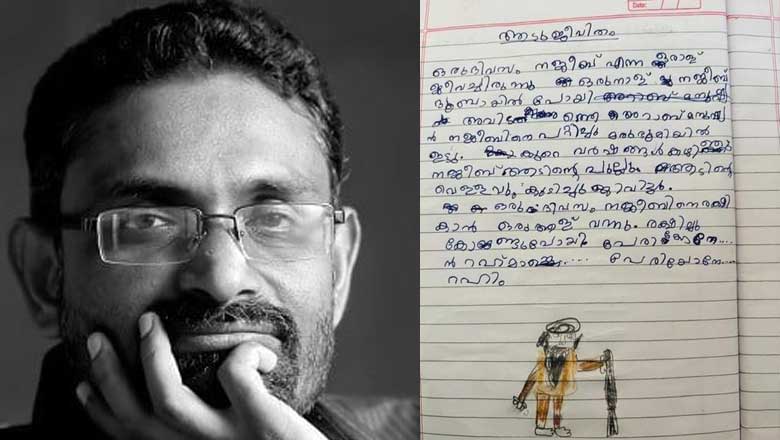 Date:
ആടുജീവിതം
ഒരുദിവസം നജീബ് എന്ന ഒരാള്
ജീവച്ചിരുന്നു ഒരുനാള് നജീബ്
ദുബായിൽ പോയി
അവിടത്തെ അറാബ് മനുഷ്യ
ൻ നജീബിനെ പറ്റിച്ചു മരുഭൂമിയിൽ
ഇട്ടു. കുറെ വർഷങ്ങൾകഴിഞ്ഞു
നജീബ് ആടിന്റെ പുല്ലും ആടിന്റെ
വെള്ളവും, കുടിച്ചു ജീവിച്ചു.
ഒരുദിവസം നജീബിനെ രക്ഷി
കാൻ ഒരു ആള് വന്നു. രക്ഷിച്ചു
കോണ്ടുപോയി പേരിയോനേ....
ൻ റഹ്മാനെ..... പേരിയോനേ.....
റഹിം